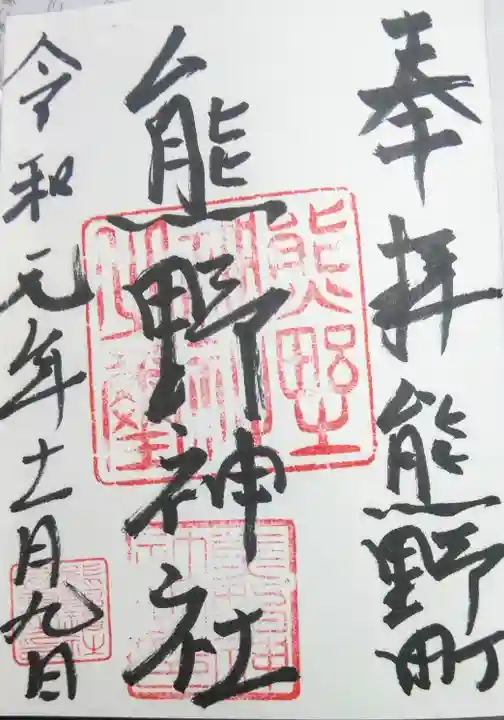 奉拝熊野町
熊野神社
令和元年十一月九日
熊野